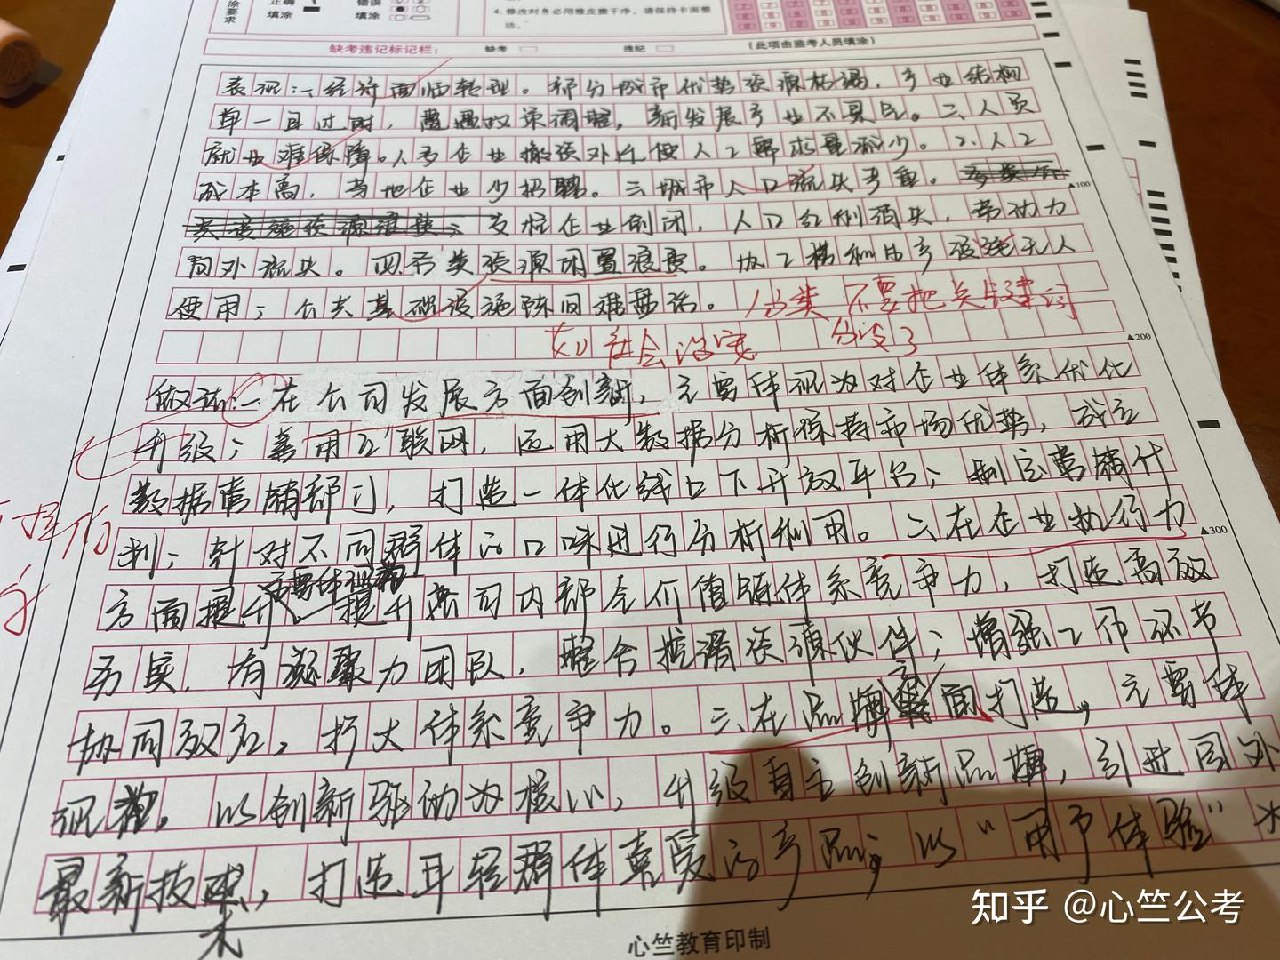 涂要求
正确
填涂
错误
填涂
4. 修改时务必用橡皮擦干净，请保持卡面整洁。
缺考违记标记栏:  缺考  违纪  (此项由监考人员填涂)
表现：一经济面临转型。部分城市优势资源枯竭，产业结构
单一且过时，遭遇政策调整，新发展产业不具民。二人员
就业难保障。1.多企业搬迁外地使人工需求量减少。2.人工
成本高，当地企业少招聘。三城市人口流失严重。
支柱企业倒闭，人口红利消失，劳动力
向外流失。四各类资源闲置浪费。
使用；公共基础设施陈旧难盘活。
分类 不要把关键词
分没了
如 社会治安
▲100
▲200
做法：一在公司发展方面创新，主要体现为对企业体系优化
升级；善用互联网，运用大数据分析保持市场优势，成立
数据营销部门，打造一体化线上下开放平台；制定营销计
划；针对不同群体的口味进行分析利用。二在企业执行力
▲300
方面提升，主要体现为提升公司内部全价值链体系竞争力，打造高效
务实、有凝聚力团队，整合控谱资源伙伴；增强工作环节
协同效应，扩大体系竞争力。三在品牌方面打造，主要体
现为，以创新驱动为核心，升级自主创新品牌，引进国外
最新技术，打造年轻群体喜爱的产品；以“用户体验”为
心竺教育印制
知乎 @心竺公考